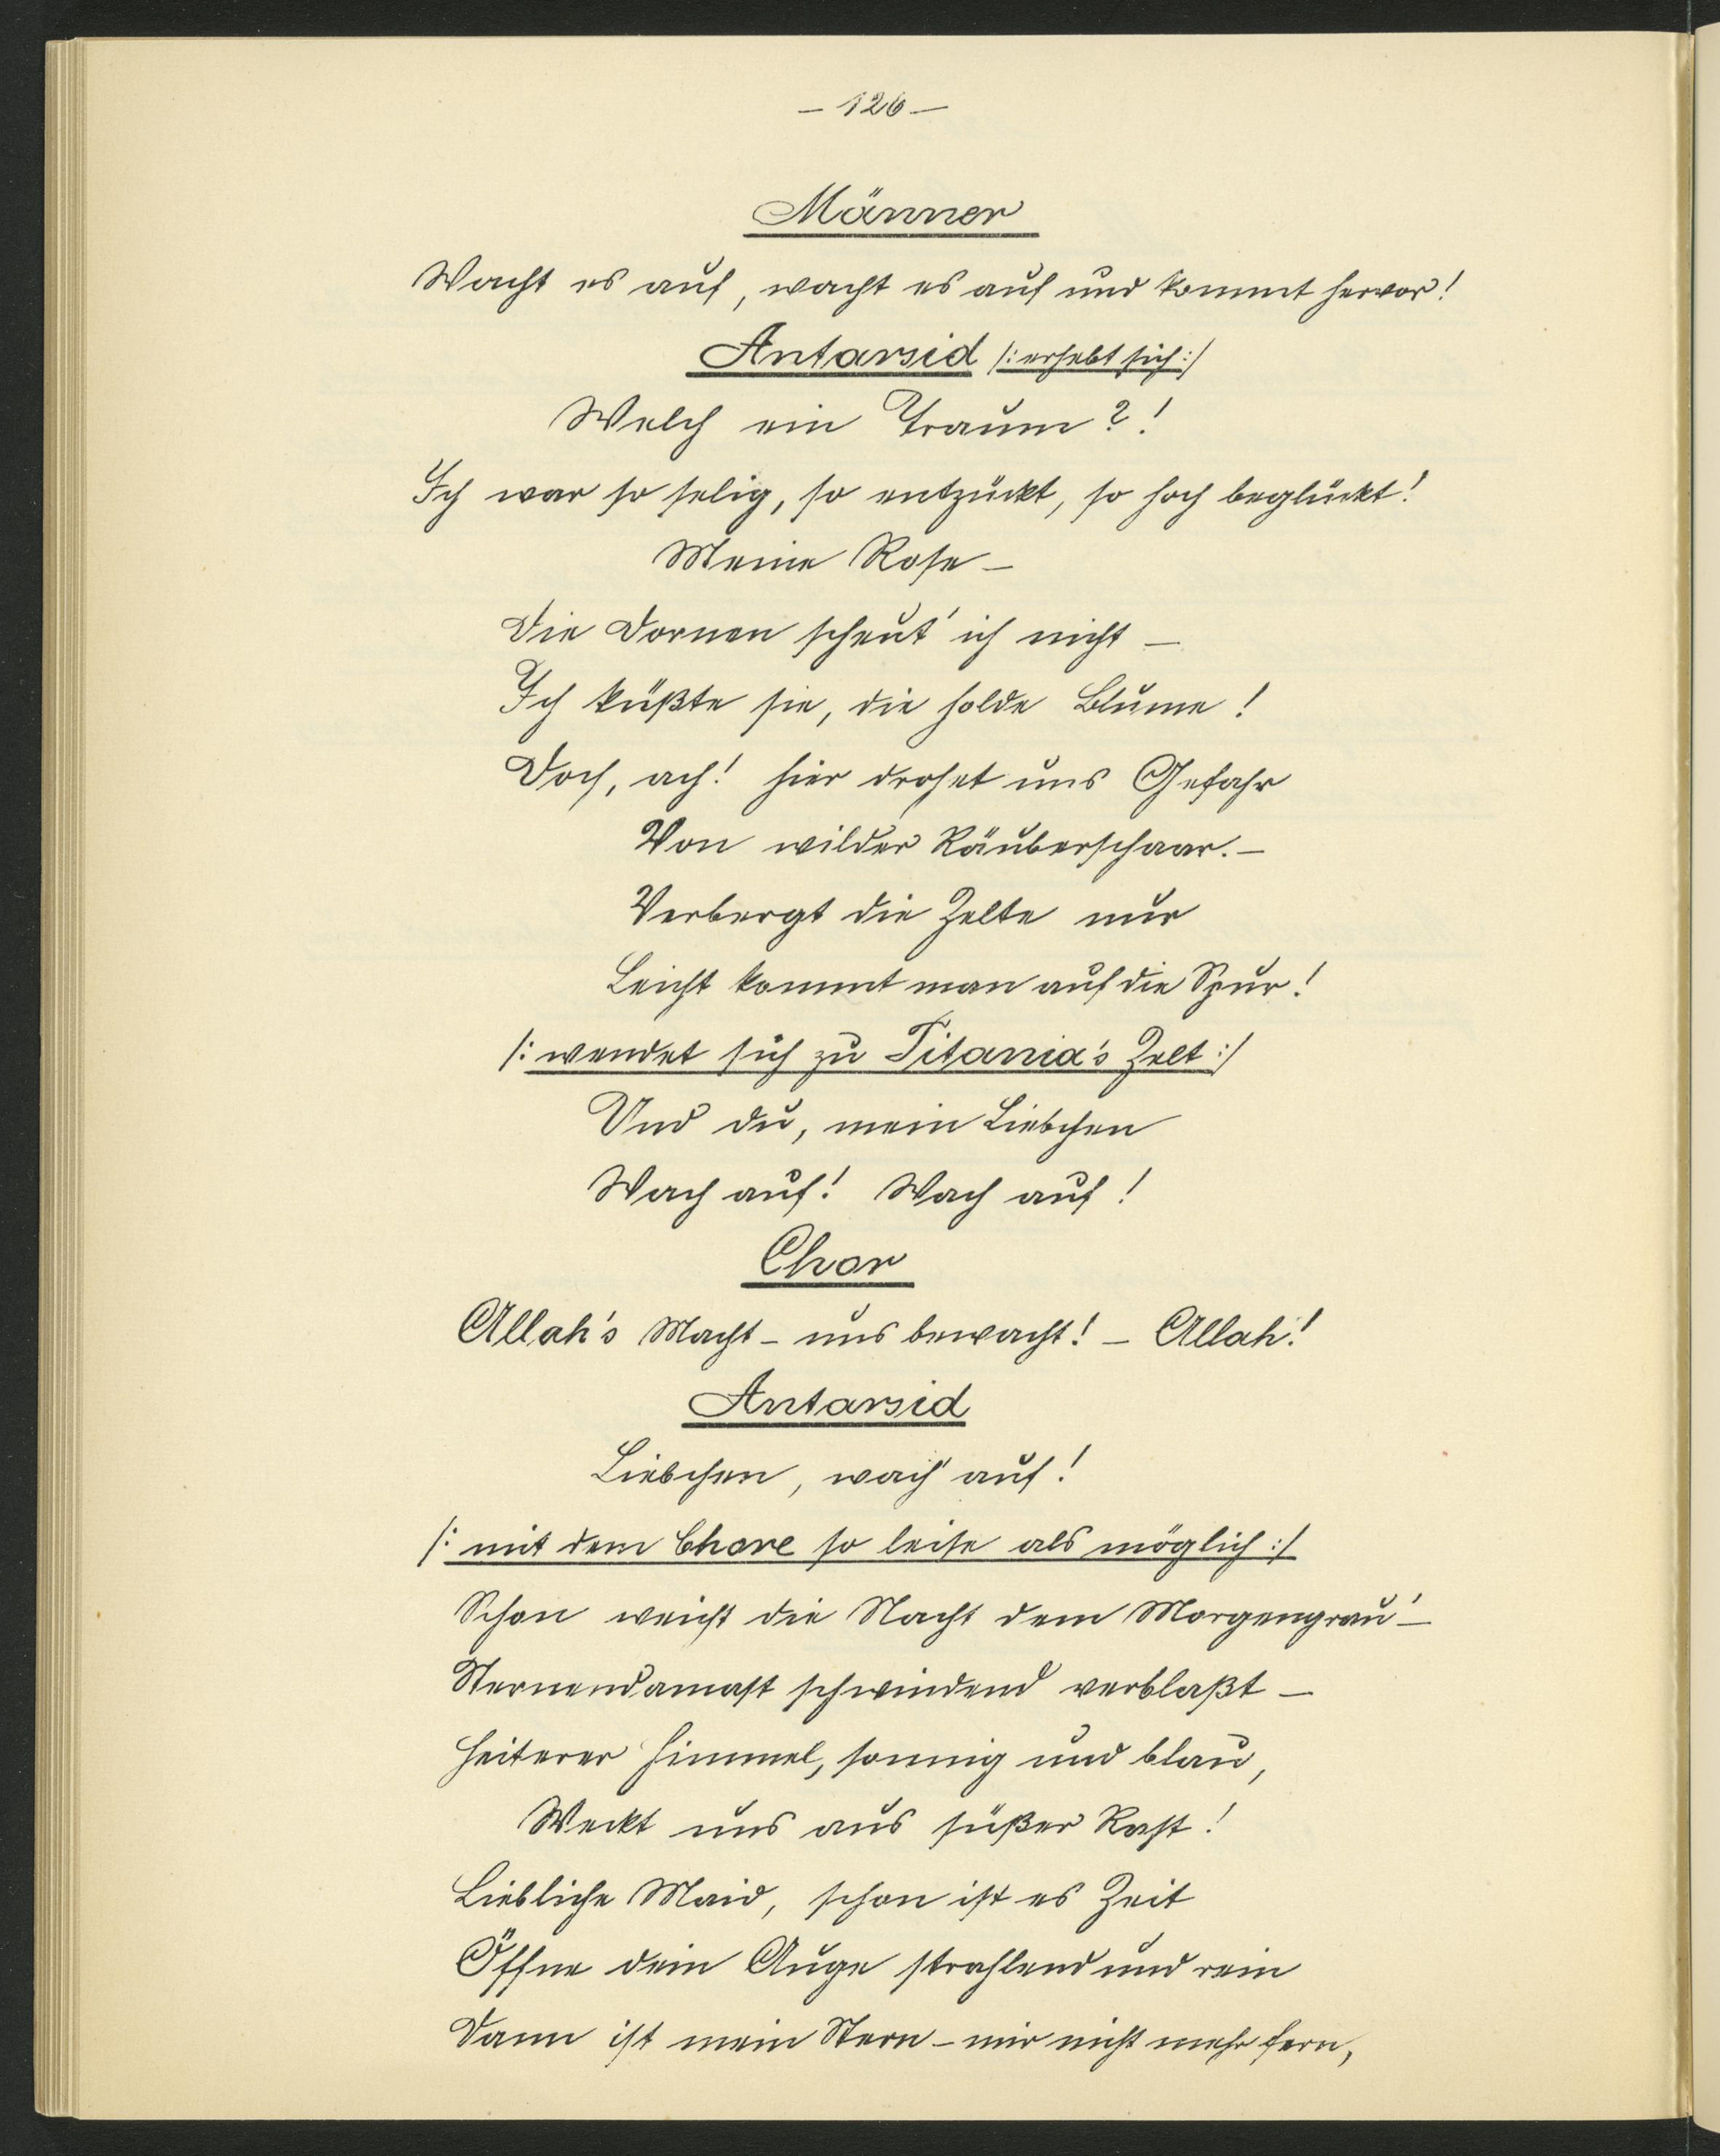 – 126 –
Männer
Wacht es auf, wacht es auf und kommt hervor!
Antarsid /: erhebt sich :/
Welch ein Traum?!
Ich war so selig, so entzückt, so hoch beglückt!
Meine Rose –
Die Dornen scheut' ich nicht –
Ich küßte sie, die holde Blume!
Doch, ach! hier drohet uns Gefahr
Von wilder Räuberschaar. –
Verbergt die Zelte nur
Leicht kommt man auf die Spur!
/: wendet sich zu Titania's Zelt :/
Und du, mein Liebchen
Wach auf! Wach auf!
Chor
Allah's Macht – uns bewacht! – Allah!
Antarsid
Liebchen, wach' auf!
/: mit dem Chore so leise als möglich :/
Schon weicht die Nacht dem Morgengrau' –
Sternendamast schwindend verblaßt –
Heiterer Himmel, sonnig und blau,
Weckt uns aus süßer Rast!
Liebliche Maid, schon ist es Zeit
Öffne dein Auge strahlend und rein
Dann ist mein Stern – mir nicht mehr fern,